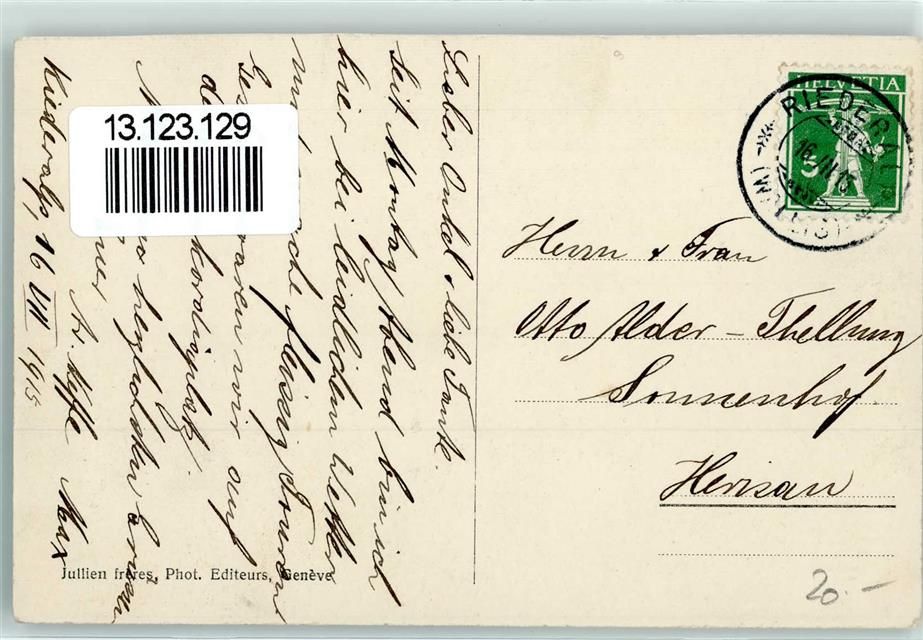 Lieber Onkel & liebe Tante.
Seit Montag Abend bin ich
hier bei leidlichem Wetter
und mache fleissig Touren
waren wir auf
herzlichsten Grüssen
Ihr Neffe Max
Riederalp, 16 VII 1915
13.123.129
HELVETIA
5
RIEDERAL
16. VII 15
Herrn & Frau
Otto Alder-Thellung
Sonnenhof.
Herisau
Jullien frères, Phot. Editeurs, Genève
20.-